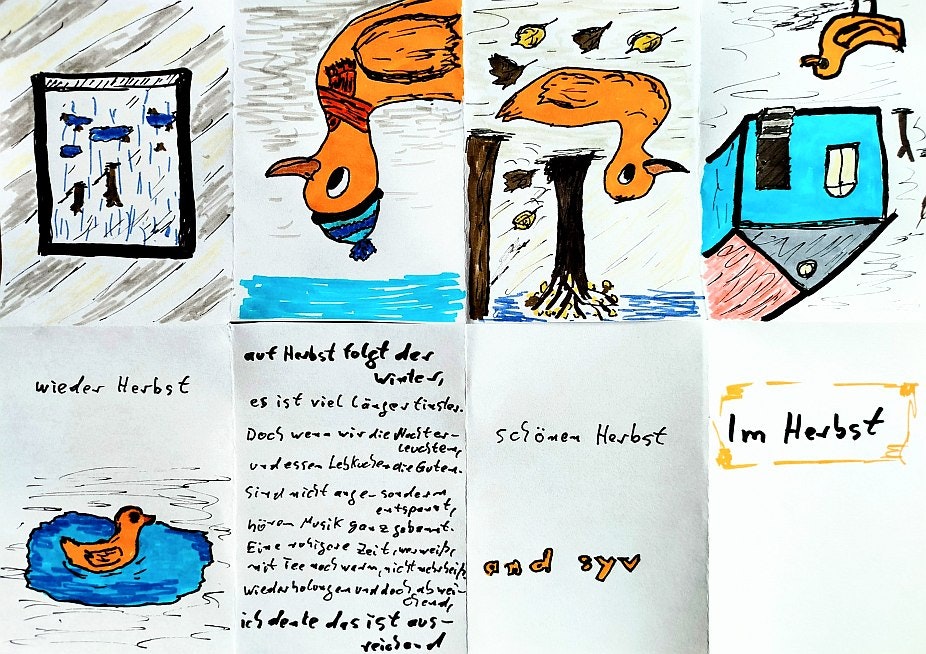 wieder Herbst
auf Herbst folgt der
Winter,
es ist viel länger finster.
Doch wenn wir die Nacht er-
leuchten,
und essen Lebkuchen die Guten.
Sind nicht ange- sondern
entspannt,
hören Musik ganz gebannt.
Eine ruhigere Zeit, wer weiß,
mit Tee noch warm, nicht mehr heiß
wiederholungen und doch abwei-
chend,
ich denke das ist aus-
reichend
schönen Herbst
and syv
Im Herbst